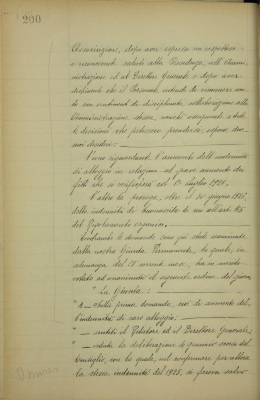 200
Associazioni, dopo aver espresso un rispettoso
e riconoscente saluto alla Presidenza, all'Ammi-
nistrazione ed al Direttore Generale e dopo aver
dichiarato che il Personale, intende di rimanere unito
con sentimenti di disciplinata collaborazione alla
Amministrazione stessa, nonché ossequiente a tutte
le decisioni che potessero prendersi, espone due
suoi desideri:
l'uno riguardante l'aumento dell'indennità
di alloggio in relazione al nuovo aumento dei
fitti che si verificherà col 1° luglio 1926;
l'altro la proroga, oltre il 30 giugno 1926,
della indennità di cui all'art.
del Regolamento organico.
Entrambe le domande sono già state esaminate
dalla nostra Giunta Permanente, la quale, in
adunanza del corrente mese, ha in merito
votato ad unanimità il seguente ordine del giorno
" La Giunta:
" - sulla prima domanda, cioè di aumento del-
l'indennità di caro alloggio;
" - sentiti il Relatore ed il Direttore Generale;
" - veduta la deliberazione
Consiglio, con la quale, nel confermare per allora
la stessa indennità del 1925, si faceva salvo